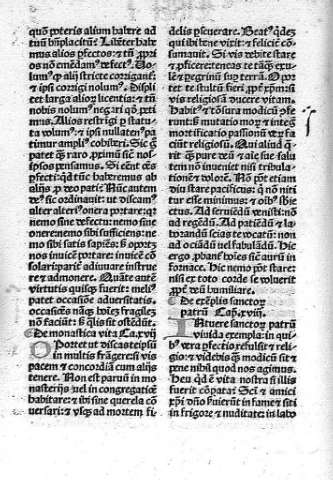 quō poteris alium habere ad
tuū bn̄placitum? Libēter habe
mus alios ꝑfectos: ⁊ tn̄ ꝓpri
os nō emēdam⁹ defect⁹. Uo
lum⁹ ꝙ alij stricte corrigant̄:
⁊ ipsi corrigi nolum⁹. Displi
cet larga alioꝝ licentia: ⁊ tn̄
nobis nolum⁹ negari qd̄ peti
mus. Alios restrīgi ꝑ statu
ta volum⁹: ⁊ ipsi nullaten⁹ pa
timur ampli⁹ cohiberi. Sic ḡ
patet q̄ʒ raro, ꝓximū sic̄ nos
ipsos pensamus. Si eēnt oēs
ꝑfecti: qd̄ tūc haberemus ab
alijs ꝓ deo pati? Nūc autem
de⁹ sic ordinauit: ut discam⁹
alter alteri⁹ onera portare: qꝛ
nemo sine defectu: nemo sine
onere nemo sibi sufficiens: ne
mo sibi satis sapiēs: sʒ oportʒ
nos inuicē portare: inuicē cō
solari: parit̄ adiuuare instrue
re ⁊ admonere. Quāte autē
virtutis quisqʒ fuerit: meli⁹
patet occasiōe aduersitatis.
occasiōes nāqʒ hoīeʒ fragileʒ
nō faciūt: sʒ q̄lis sit ostēdūt.
De monastica vita Ca. xvij
Oportet ut discas teipsū
in multis frāgere: si vis
pacem ⁊ concordiā cum alijs
tenere. Non est paruū in mo
nasterijs uel in congregatiōe
habitare: ⁊ ibi sine querela cō
uersari: ⁊ vsqʒ ad mortem fi
delis ꝑseuerare. Beat⁹ q̇ dez
qui ibi bene vixit: ⁊ feliciē cō
sumauit. Si vis debite stare
⁊ ꝓficere: teneas te tāqʒ exu
lē ⁊ ꝑegrinū suꝑ terrā. Opor
tet te stultū fieri, ꝓpt̄ xp̄m: si
vis religiosā ducere vitam.
Habit⁹ ⁊ tōsura modicū ꝓfe
runt: sʒ mutatio moꝝ ⁊ integra
mortificatio passionū veꝝ fa
ciūt religiosū. Qui aliud q̄
rit q̄ʒ pure deū ⁊ aīe sue salu
tem nō inueniet nisi tribula
tionē ⁊ dolorē. Nō pōt etiam
diu stare pacificus: q̇ nō niti
tur esse minimus: ⁊ oībʒ sbie
ctus. Ad seruiēdū venisti: nō
ad regēdū. Ad patiēdū ⁊ la
borandū scias te vocatū: non
ad ociādū uel fabulādū. Hic
ergo ꝓbant̄ hoīes sic̄ aurū in
fornace. Hic nemo pōt stare:
nisi ex toto corde se voluerit
ꝓpt̄ deū humiliare.
De exēplis sanctoꝝ
patrū Cap. xviij.
Intuere sanctoꝝ patrū
viuida exempla: in qui
bʒ vera ꝑfectio refulsit ⁊ reli
gio: ⁊ videbis q̄ʒ modicū sit ⁊
pene nihil quod nos agimus.
Heu qd̄ ē vita nostra si illis
fuerit cōpata? Scī ⁊ amici
xp̄i dn̄o s̄uierūt in fame ⁊ siti
in frigore ⁊ nuditate: in labo